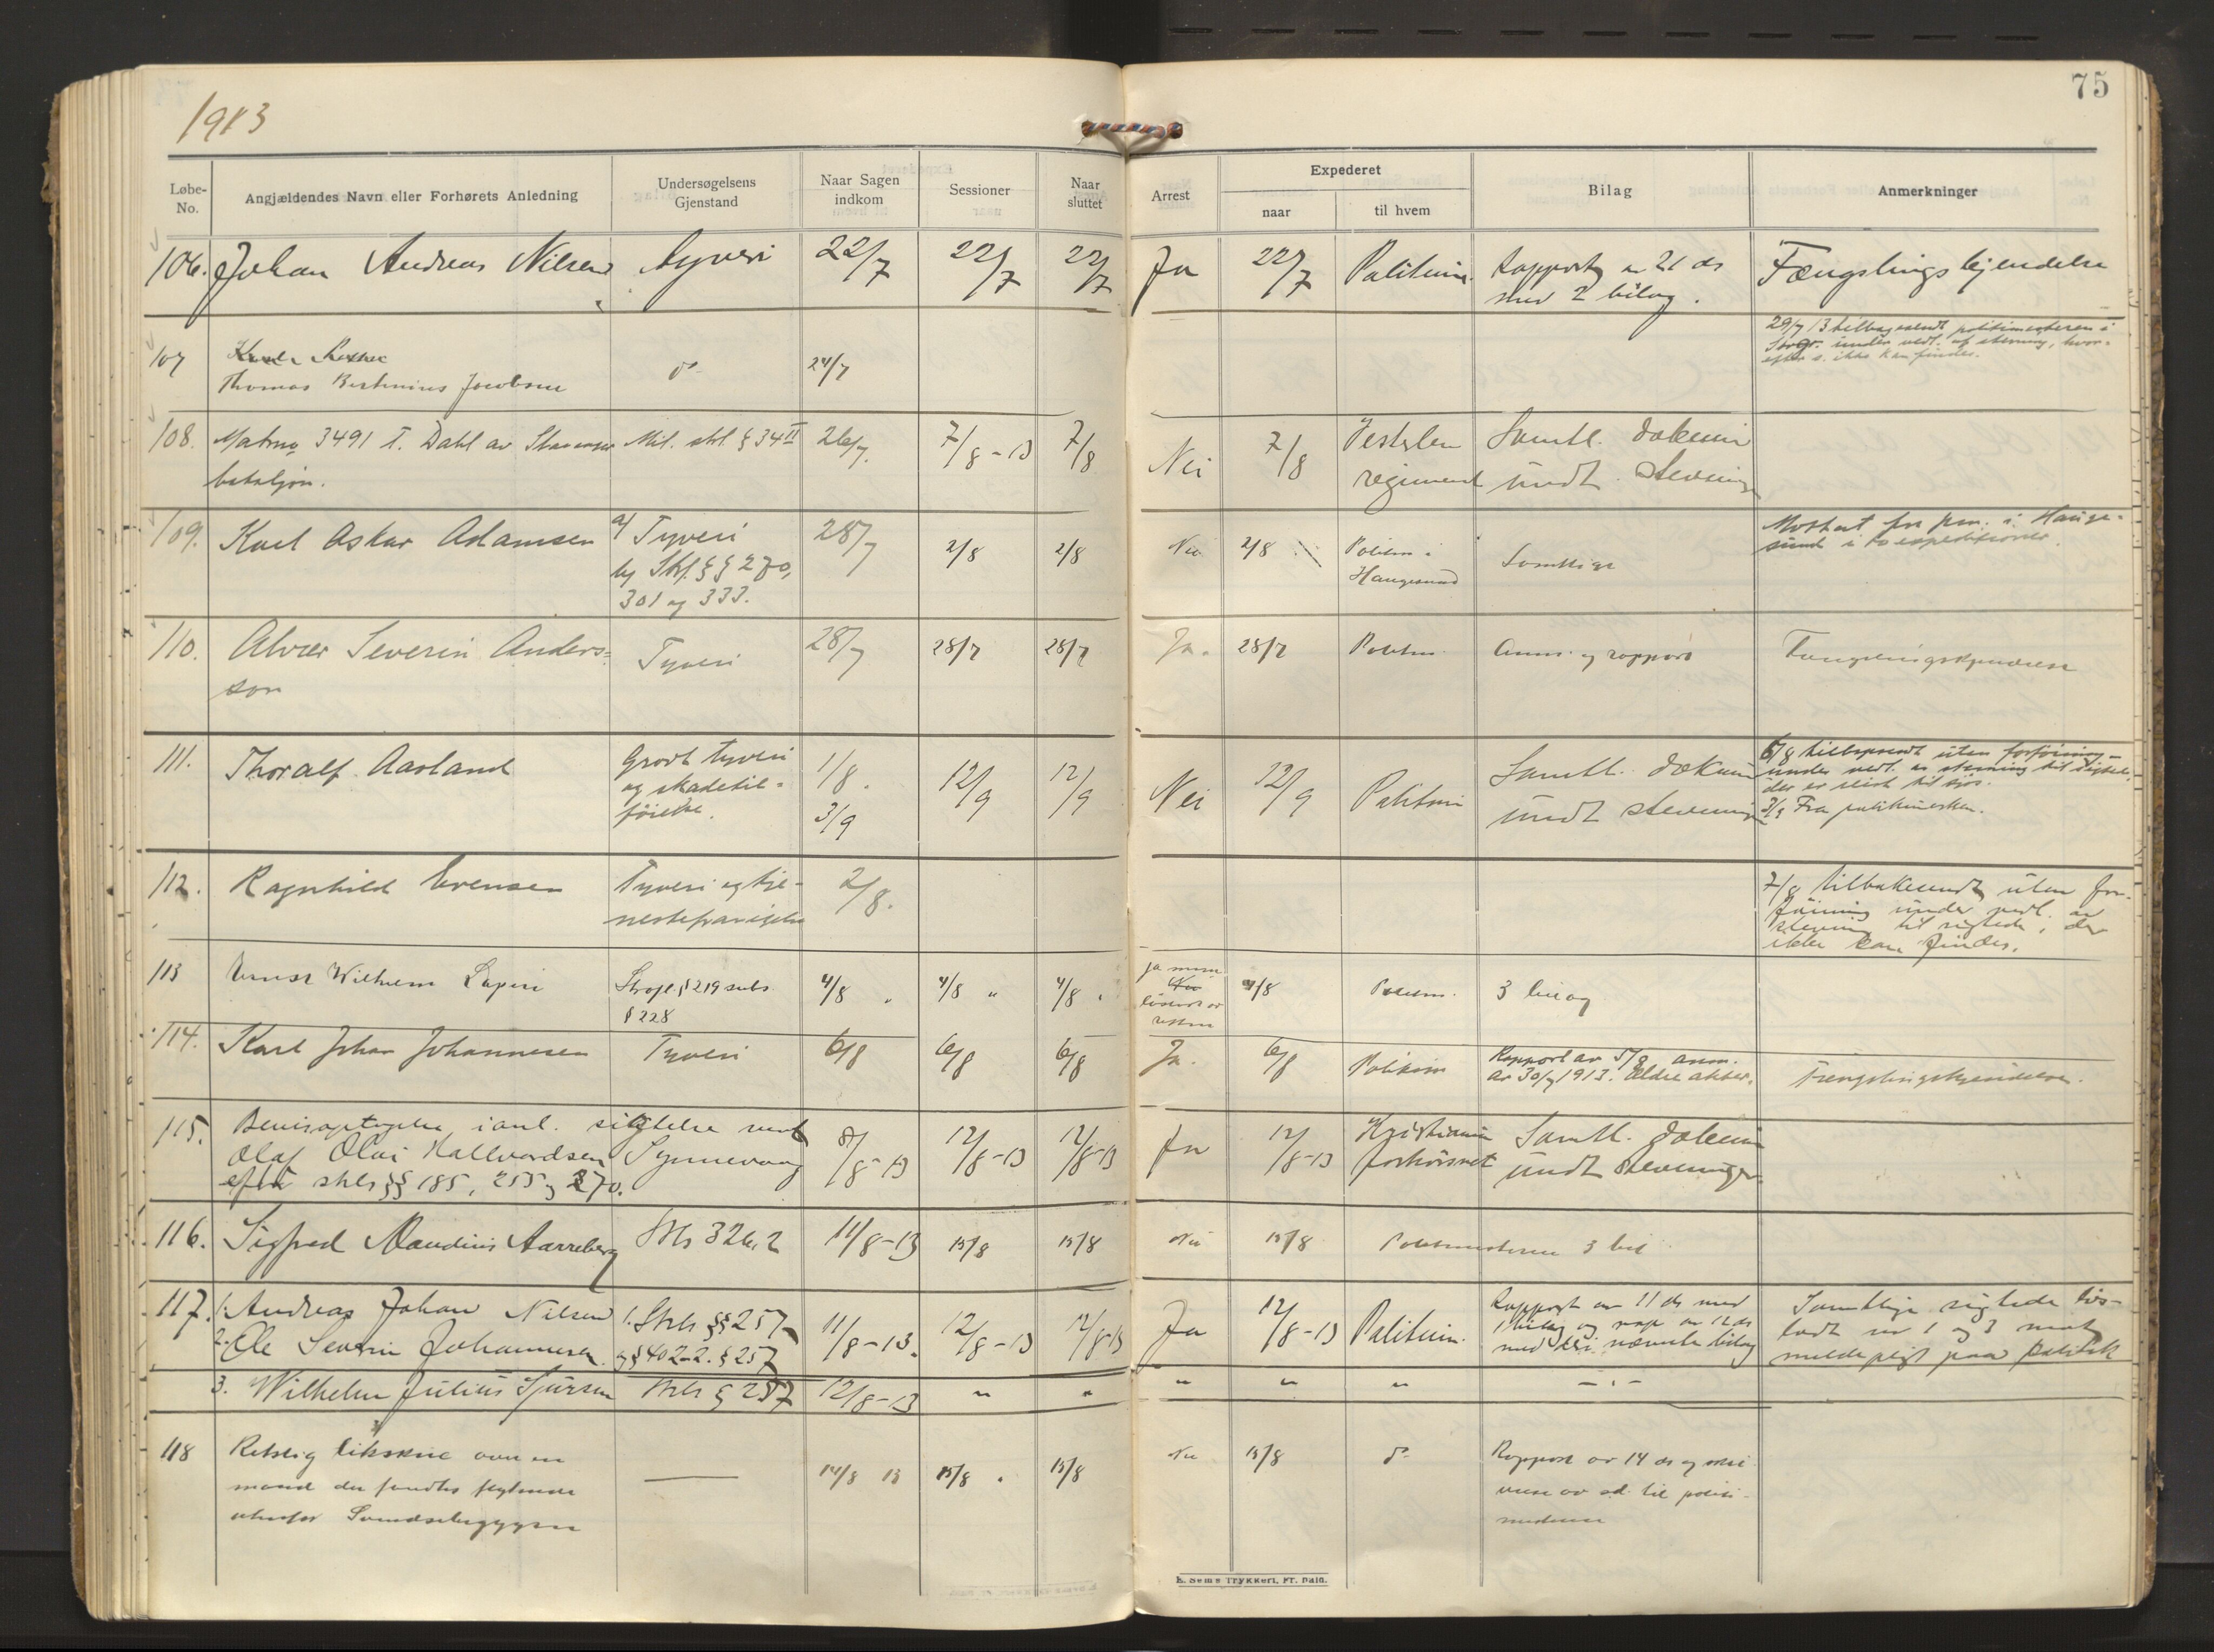 1913
75
Løbe-No.
Angjældendes Navn eller Forhørets Anledning
Undersøgelsens Gjenstand
Naar Sagen indkom
Sessioner
Naar sluttet
Arrest
Expederet
naar
til hvem
Bilag
Anmerkninger
106. Johan Andreas Nilsen Tyveri 22/7 22/7 22/7 Ja 22/7 Politim. Rapport av 21 ds Fængslingskjendelse
med 2 bilag.
29/7 13 tilbagesendt politimesteren i
under vedl. af stevning, hvor-
efter s. ikke kan findes.
107 Thomas Bertinius Jacobsen do 24/7
108. Matros 3491 T. Dahl av Stavanger Mil. strl. § 34 II 26/7. 7/8-13 7/8 Nei 7/8 Vesterlen Samtl. dokum
bataljon. regiment undt. stevning
109. Karl Oskar Adamsen a) Tyveri 28/7 2/8 2/8 Nei 2/8 Politim i Haugesund Samtlige
b) Strl. §§ 270,
301 og 333.
Mottat fra pm. i Hauge-
sund i to expeditioner.
110. Alvar Severin Anders= Tyveri 28/7 28/7 28/7 Ja. 28/7 Politim. Anm. og rapport Fængslingskjendelse
son
111. Thoralf Aasland Grovt tyveri 1/8. 12/9 12/9 Nei 12/9 Politim Samtl. dokum
og skadetil= 3/9 undt stevning
føielse.
6/8 tilbagesendt uten forføining
under vedl. av stevning til sigtede,
der er reist til sjøs.
3/9 Fra politimesteren.
112. Ragnhild Evensen Tyveri og tje- 2/8.
7/8 tilbakesendt uten for-
føining under vedl. av
stevning til sigtede, der
ikke kan findes.
113 Ernst Wilhelm Strafl § 219 subs 4/8 " 4/8 " 4/8 " Ja 4/8 Politim. 3 bilag
§ 228
114. Karl Johan Johannesen Tyveri 6/8 6/8 6/8 Ja. 6/8 Politim Rapport av 5/8 anm. Fængslingskjendelse.
av 30/7 1913. Ældre akter.
115. Bevisoptagelse i anl. sigtelse mot 8/8-13 12/8-13 12/8-13 Ja 12/8-13 Kristiania Samtl. dokum
Olaf Olai Hallvardsen Synnevaag forhørsret undt stevninger
efter strls §§ 185, 255 og 270.
116. Sigfred Maudius Aarreberg Strls 326,2 11/8-13 15/8 15/8 Nei 15/8 Politimesteren 3 bil
117. 1. Andreas Johan Nilsen 1. Strls §§ 257 11/8-13. 12/8-13 12/8-13 Ja 12/8-13 Politim. Rapport av 11 ds med Samtlige sigtede løs-
2. Ole Severin Johannesen. og § 402 - 2. § 257 1 bilag og rap av 12 ds latt nr 1 og 3 mot
med de i nævnte bilag meldepligt paa politik
3. Wilhelm Julius Sjursen Strls § 257 12/8-13 " " " " " - " -
118 Retslig likskue over en 14/8 13 15/8 " 15/8 Nei 15/8 do Rapport av 14 ds og skri-
mand der fandtes flytende velse av s.d. til politi-
utenfor mesteren
E. Sem's Trykkeri, Fr. hald.